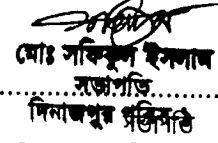 মোঃ সফিকুল ইসলাম
সভাপতি
দিনাজপুর
সভাপতি